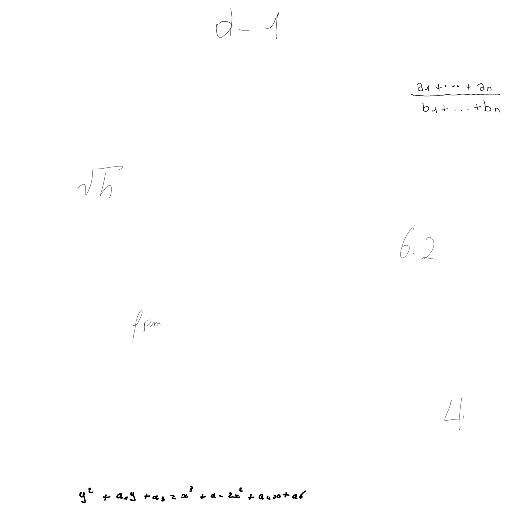 d - 1
\frac{a_1 + \cdots + a_n}{b_1 + \cdots + b_n}
\sqrt{h}
6.2
f_{pm}
4
y^2 + a_1 y + a_3 = x^3 + a - 2x^2 + a_4 x + a_6